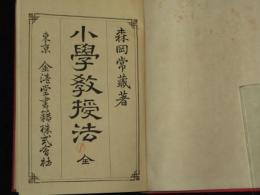 森岡常藏著
小學敎授法
全
東京 金港堂書籍株式會社